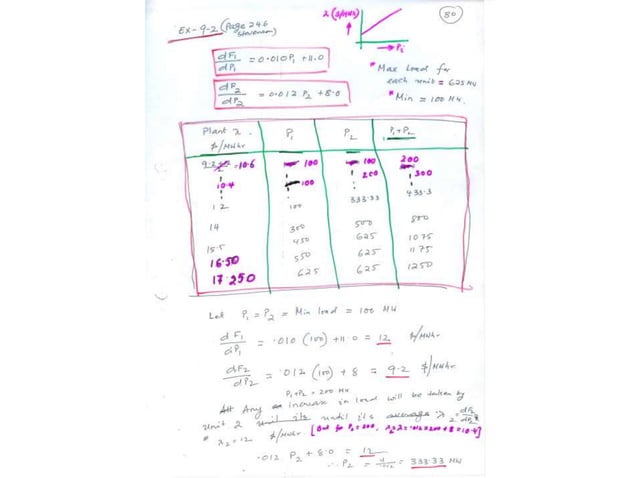 Ex-9-2 (Page 246
Stevenson)
λ ($/MWHr)
→ Pi
80
dF1/dP1 = 0.010P1 + 11.0
dF2/dP2 = 0.012 P2 + 8.0
* Max Load for
each unit = 625 MW
* Min = 100 MW.
Plant λ. P1 P2 P1+P2
$/MWhr
= 10.6 100 100 200
10.4 100 200 300
12 100 333.33 433.3
14 300 500 800
15.5 450 625 1075
16.50 550 625 1175
17.250 625 625 1250
Let P1 = P2 = Min load = 100 MW
dF1/dP1 = .010 (100) + 11.0 = 12 $/MWhr
dF2/dP2 = .012 (100) + 8 = 9.2 $/MWhr
P1+P2 = 200 MW
Any increase in load will be taken by
Unit 2 until its λ2 = dF2/dP2
* λ2 = 12 $/MWhr [But for P2 = 200, λ2 = .012×200+8 = 10.4]
.012 P2 + 8.0 = 12
∴ P2 = 4/.012 = 333.33 MW